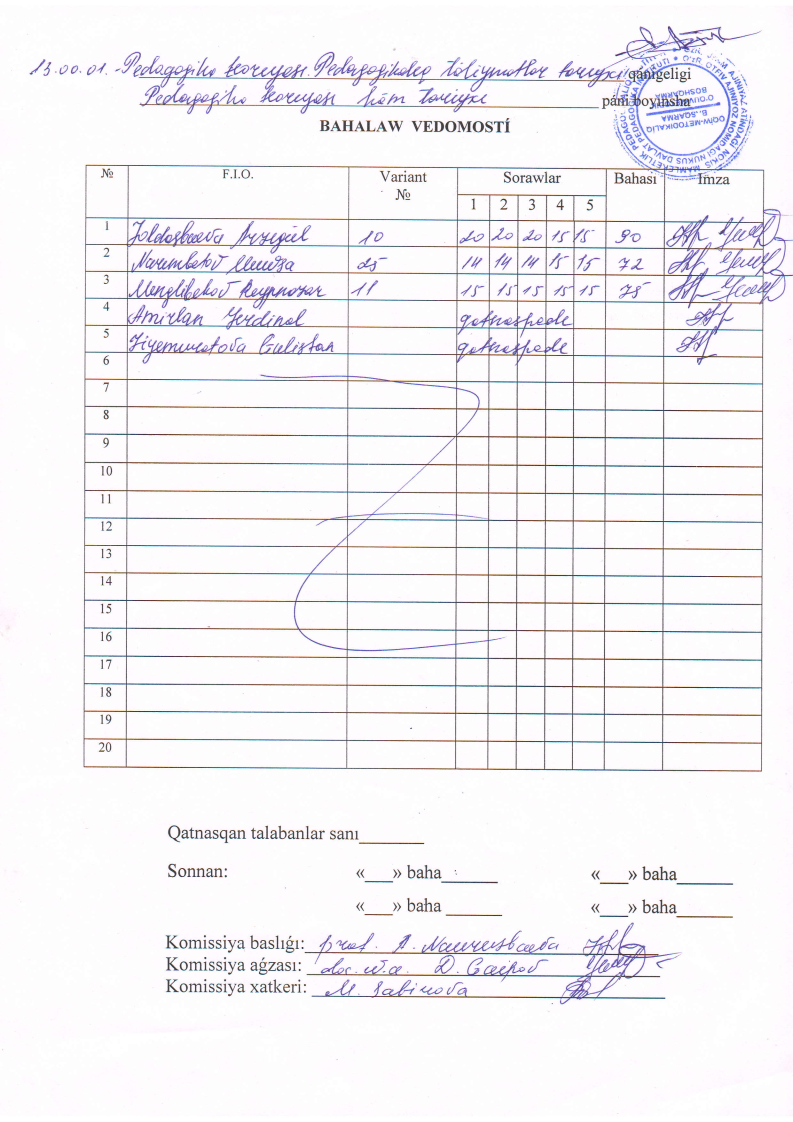 13.00.01.-Pedagogika teoriyası. Pedagogikalıq táliymatlar tariyxı qánigeligi
Pedagogika teoriyası hám tariyxı páni boyınsha
BAHALAW VEDOMOSTÍ
№ F.I.O. Variant № Sorawlar Bahası Imza
1 2 3 4 5
1 Joldasbaeva Arzıgúl 10 20 20 20 15 15 90
2 Narembetov 25 14 14 14 15 15 72
3 Menglibekov 11 15 15 15 15 15 75
4 Amirlan qatnaspadı
5 Jiyemuratova Gulistan qatnaspadı
6
7
8
9
10
11
12
13
14
15
16
17
18
19
20
Qatnasqan talabanlar sanı_______
Sonnan: «___» baha______ «___» baha______
«___» baha ______ «___» baha______
Komissiya baslıǵı: prof. A. Nauruzbaeva
Komissiya aǵzası: doc.w.a. D. Saipov
Komissiya xatkeri: M. Sabirova